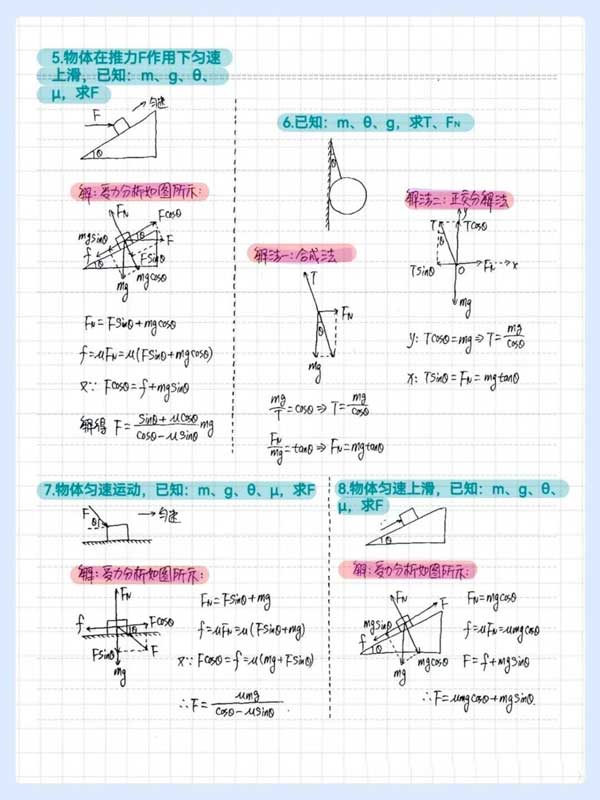 5.物体在推力F作用下匀速
上滑，已知：m、g、θ、
μ，求F
F
匀速
θ
解：受力分析如图所示：
FN
Fcosθ
mgsinθ
θ
F
f
Fsinθ
θ
mgcosθ
mg
FN=Fsinθ+mgcosθ
f=μFN=μ(Fsinθ+mgcosθ)
又∵ Fcosθ=f+mgsinθ
解得 F=(sinθ+μcosθ)/(cosθ-μsinθ) mg
6.已知：m、θ、g，求T、FN
θ
解法一：合成法
T
FN
θ
mg
mg/T=cosθ⇒T=mg/cosθ
FN/mg=tanθ⇒FN=mgtanθ
解法二：正交分解法
y
T
Tcosθ
θ
Tsinθ
O
FN
x
mg
y: Tcosθ=mg⇒T=mg/cosθ
x: Tsinθ=FN=mgtanθ
7.物体匀速运动，已知：m、g、θ、μ，求F
F
θ
→匀速
解：受力分析如图所示：
FN
f
Fcosθ
θ
Fsinθ
F
mg
FN=Fsinθ+mg
f=μFN=μ(Fsinθ+mg)
又∵ Fcosθ=f=μ(mg+Fsinθ)
∴F=μmg/(cosθ-μsinθ)
8.物体匀速上滑，已知：m、g、θ、
μ，求F
θ
解：受力分析如图所示：
FN
F
mgsinθ
f
θ
mgcosθ
mg
FN=mgcosθ
f=μFN=μmgcosθ
F=f+mgsinθ
∴F=μmgcosθ+mgsinθ